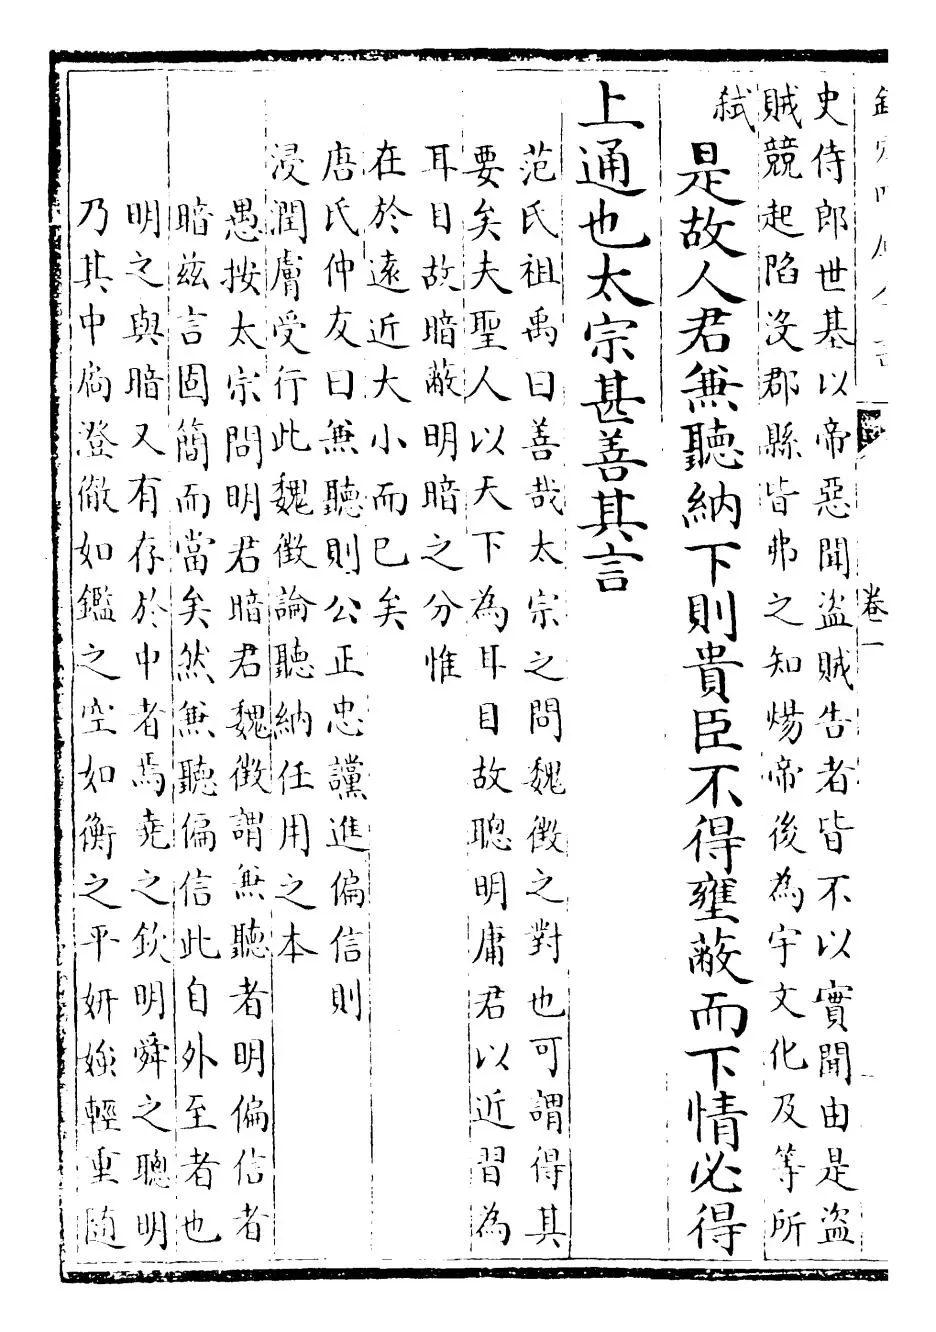 欽定四庫全書
卷一
史侍郎世基以帝惡聞盜賊告者皆不以實聞由是盜
賊競起陷沒郡縣皆弗之知煬帝後為宇文化及等所
弑
是故人君兼聽納下則貴臣不得壅蔽而下情必得
上通也太宗甚善其言
范氏祖禹曰善哉太宗之問魏徵之對也可謂得其
要矣夫聖人以天下為耳目故聰明庸君以近習為
耳目故暗蔽明暗之分惟
在於遠近大小而已矣
唐氏仲友曰兼聽則公正忠讜進偏信則
浸潤膚受行此魏徵論聽納任用之本
愚按太宗問明君暗君魏徵謂兼聽者明偏信者
暗茲言固簡而當矣然兼聽偏信此自外至者也
明之與暗又有存於中者焉堯之欽明舜之聰明
乃其中扃澄徹如鑑之空如衡之平妍媸輕重隨